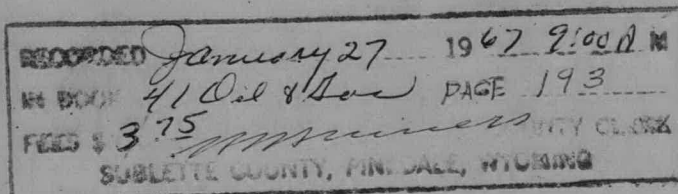 RECORDED January 27 1967 9:00 A M
IN BOOK 41 Oil & Gas PAGE 193
FEES $ 3.75 COUNTY CLERK
SUBLETTE COUNTY, PINEDALE, WYOMING